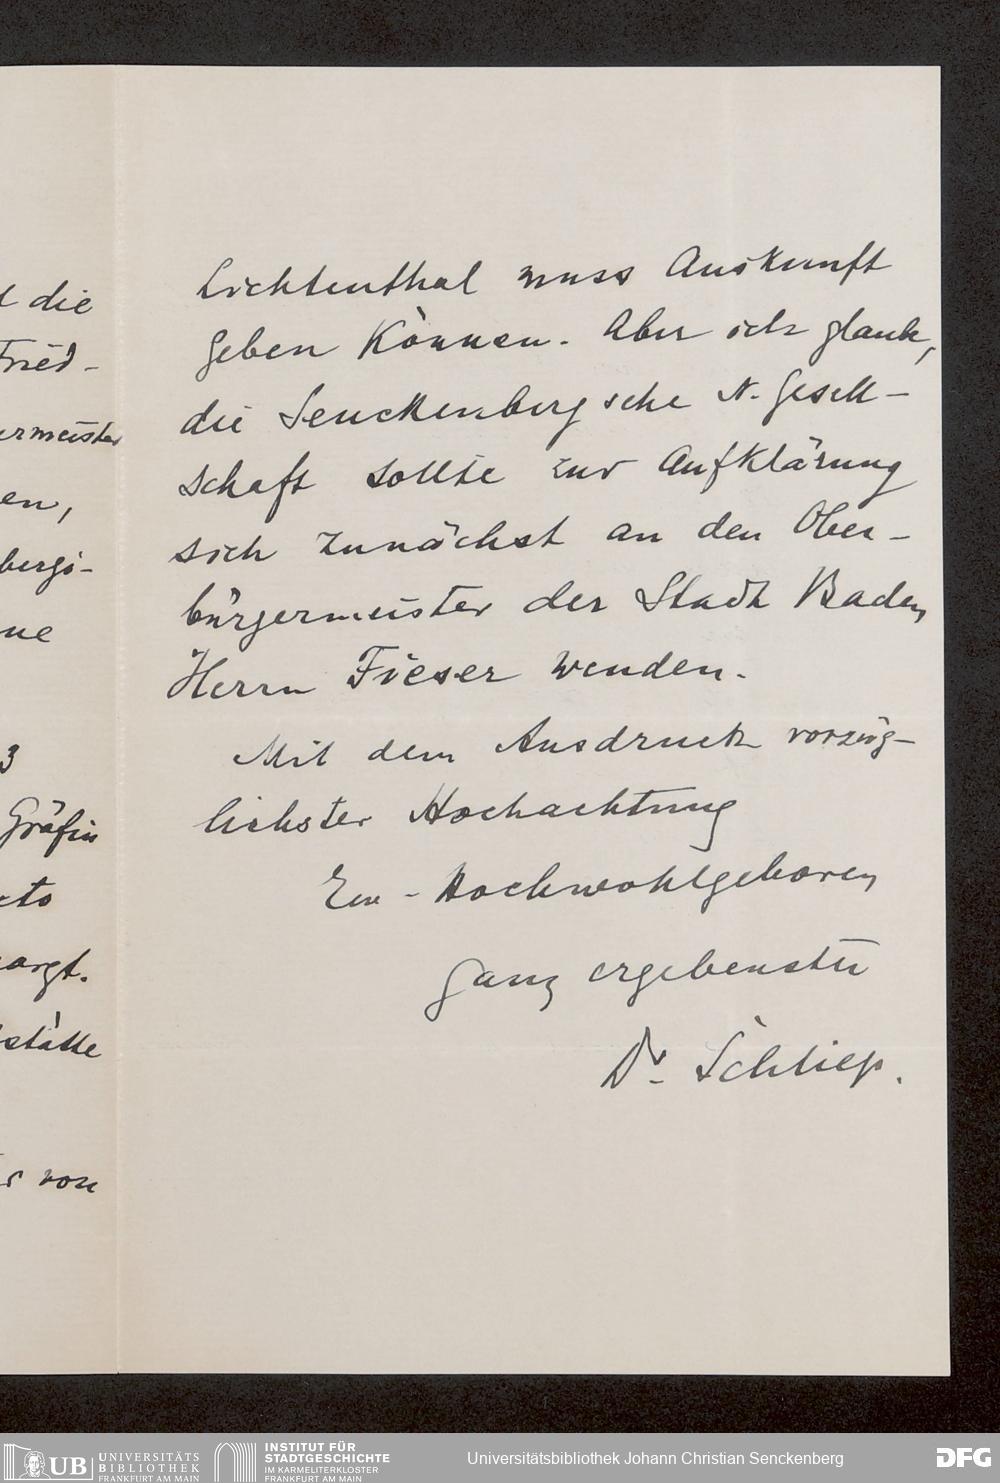 d die
Fried-
ermeister
en,
bergi-
ne
3
Gräfin
cto
argt.
stätte
r von
Lichtenthal muss Auskunft
geben können. Aber ich glaube,
die Senckenbergische N. Gesell-
schaft sollte zur Aufklärung
sich zunächst an den Ober-
bürgermeister der Stadt Baden
Herrn Fieser wenden.
Mit dem Ausdruck vorzüg-
lichster Hochachtung
Ew. Hochwohlgeboren
ganz ergebenster
Dr. Schliep.
UB UNIVERSITÄTS
BIBLIOTHEK
FRANKFURT AM MAIN
INSTITUT FÜR
STADTGESCHICHTE
IM KARMELITERKLOSTER
FRANKFURT AM MAIN
Universitätsbibliothek Johann Christian Senckenberg
DFG